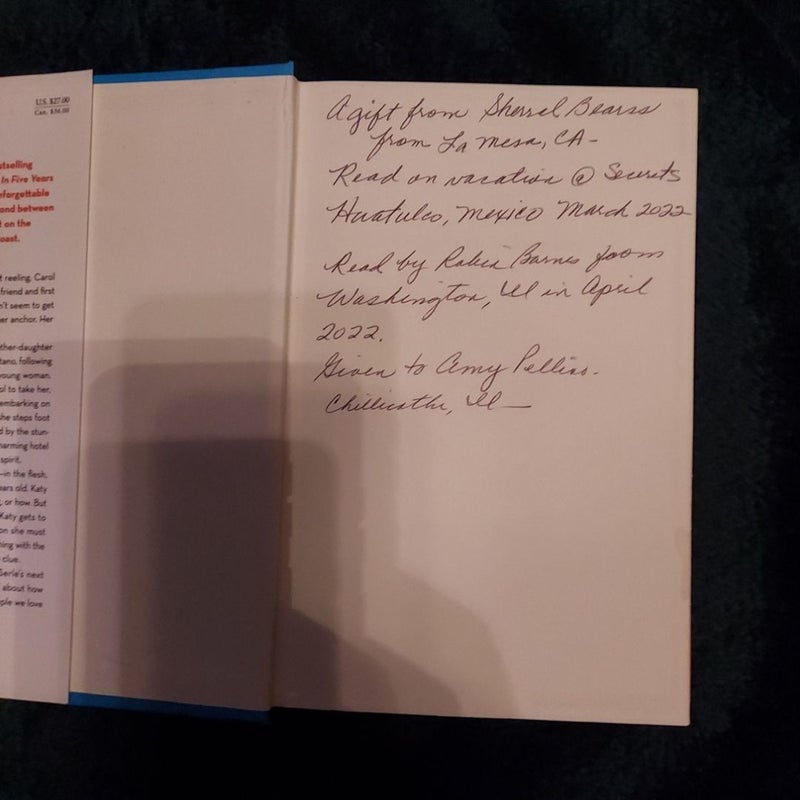 U.S. $27.00
Can. $36.00
stselling
In Five Years
nforgettable
ond between
t on the
oast.
t reeling. Carol
friend and first
n't seem to get
er anchor. Her
ther-daughter
tano, following
young woman.
ol to take her,
embarking on
he steps foot
d by the stun-
harming hotel
spirit.
—in the flesh,
ears old. Katy
, or how. But
Katy gets to
on she must
ning with the
clue.
Serle's next
about how
ple we love
A gift from Sherrel Bearss
from La Mesa, CA-
Read on vacation @ Secrets
Huatulco, Mexico March 2022
Read by Robin Barnes from
Washington, Ill in April
2022.
Given to Amy Pellino.
Chillicothe, Ill—